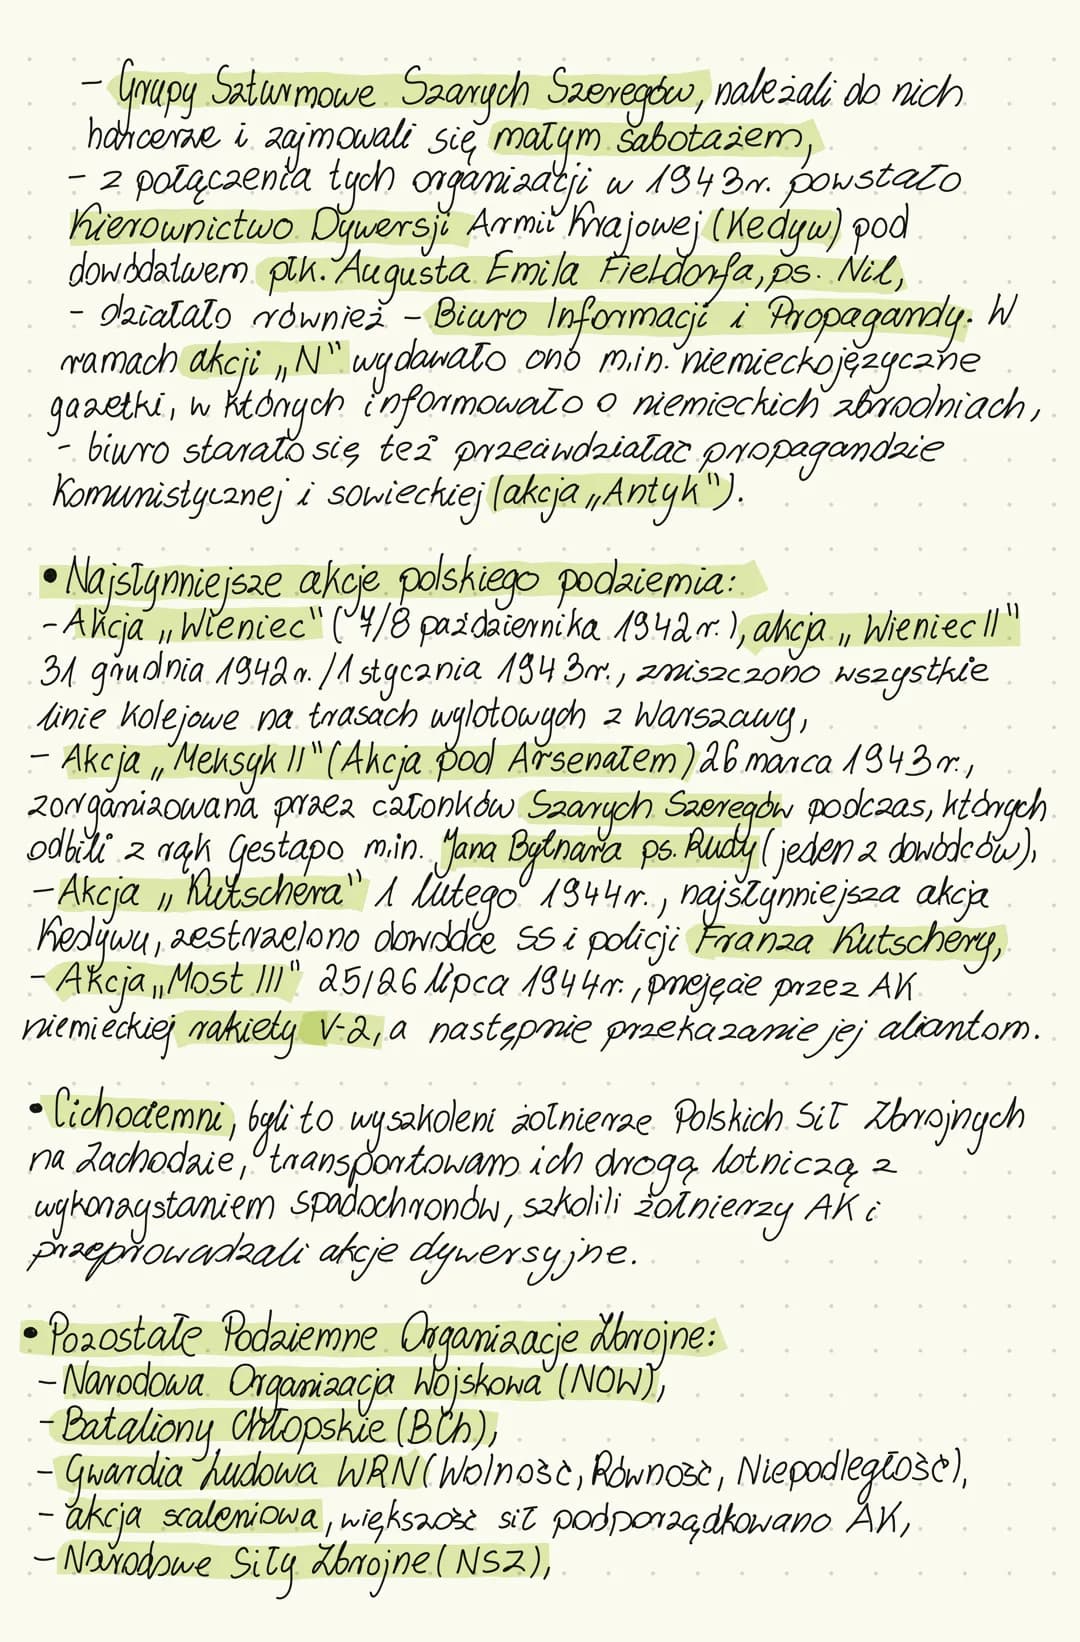 - Grupy Szturmowe Szarych Szeregów, należali do nich
harcerze i zajmowali się małym sabotażem,
- z połączenia tych organizacji w 1943r. powstało
Kierownictwo Dywersji Armii Krajowej (Kedyw) pod
dowództwem płk. Augusta Emila Fieldorfa, ps. Nil,
- działało również - Biuro Informacji i Propagandy. W
ramach akcji „N" wydawało ono m.in. niemieckojęzyczne
gazetki, w których informowało o niemieckich zbrodniach,
- biuro starało się też przeciwdziałać propagandzie
komunistycznej i sowieckiej (akcja „Antyk").
• Najsłynniejsze akcje polskiego podziemia:
- Akcja „Wieniec" (7/8 października 1942r.), akcja „Wieniec II"
31 grudnia 1942r./1 stycznia 1943r., zniszczono wszystkie
linie kolejowe na trasach wylotowych z Warszawy,
- Akcja „Meksyk II" (Akcja pod Arsenałem) 26 marca 1943r.,
zorganizowana przez członków Szarych Szeregów podczas, których
odbili z rąk Gestapo m.in. Jana Bytnara ps. Rudy (jeden z dowódców),
- Akcja „Kutschera" 1 lutego 1944r., najsłynniejsza akcja
Kedywu, zestrzelono dowódce SS i policji Franza Kutschery,
- Akcja „Most III" 25/26 lipca 1944r., przejęcie przez AK
niemieckiej rakiety V-2, a następnie przekazanie jej aliantom.
• Cichociemni, byli to wyszkoleni żołnierze Polskich Sił Zbrojnych
na Zachodzie, transportowani ich drogą lotniczą z
wykorzystaniem spadochronów, szkolili żołnierzy AK i
przeprowadzali akcje dywersyjne.
• Pozostałe Podziemne Organizacje Zbrojne:
- Narodowa Organizacja Wojskowa (NOW),
- Bataliony Chłopskie (BCh),
- Gwardia Ludowa WRN (Wolność, Równość, Niepodległość),
- akcja scaleniowa, większość sił podporządkowano AK,
- Narodowe Siły Zbrojne (NSZ),